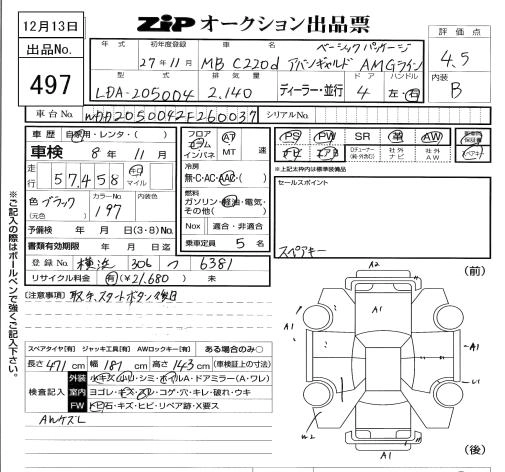 12月13日
ZIP オークション出品票
出品No.
497
評価点
4.5
内装
B
年式 初年度登録 車名 ドア ハンドル
27年11月 MB C220d
ベーシックパッケージ
アバンギャルド AMGライン
型式 排気量
LDA-205004 2.140 ディーラー・並行 4 左・右
車台No. WDD2050042F260037 シリアルNo.
車歴 自家用・レンタ・( )
車検 8年 11月
走行 57,458 km マイル
色 ブラック カラーNo. 197 内装色
(元色)
予備検 年 月 日(3・8)No.
書類有効期限 年 月 日迄
登録No. 横浜 306 つ 6381
リサイクル料金 有(¥21,680) 未
フロア コラム インパネ AT MT 速
冷房
無・C・AC・AAC・( )
燃料
ガソリン・軽油・電気・その他( )
Nox 適合・非適合
乗車定員 5名
PS PW SR 革 AW
Dチューナー(純・外含む) 社外ナビ 社外AW
*上記太枠内は標準装備品
セールスポイント
スペアキー
[注意事項] 取説、スタートボタン後日
※ご記入の際はボールペンで強くご記入下さい。
スペアタイヤ[有] ジャッキ工具[有] AWロックキー[有] ある場合のみ○
長さ 471cm 幅 181cm 高さ 143cm (車検証上の寸法)
検査記入
外装 小キズ・小凹・シミ・ホイルA・ドアミラー(A・ワレ)
室内 ヨゴレ・キズ・スレ・コゲ・穴・キレ・破れ・ウキ
FW トビ石・キズ・ヒビ・リペア跡・X要ス
AWケズレ
(前)
A2
A1
A1
A1
A1
U1
A1
W2
A1
(後)